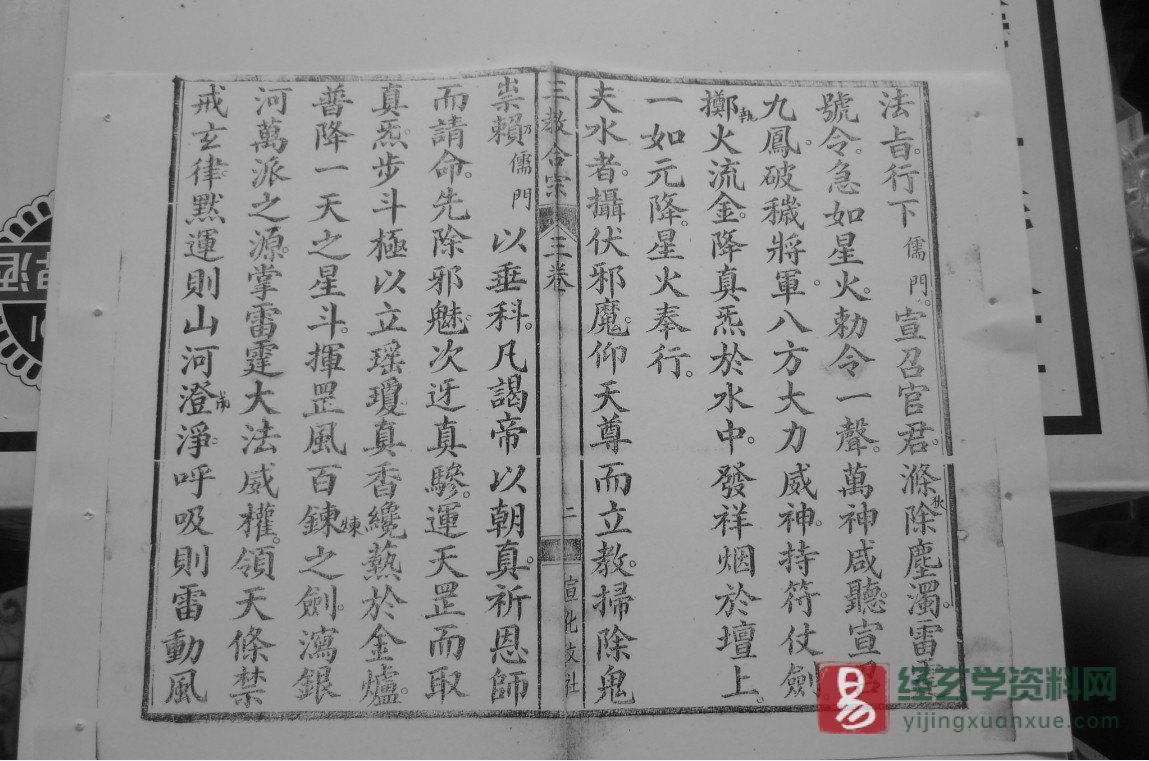 法旨。行下儒門。宣召官君。滌除塵濁。雷
號令。急如星火。勅令一聲。萬神咸聽。宣召
九鳳破穢將軍。八方大力威神。持符仗劍
擲火流金。降真炁於水中。發祥烟於壇上。
執
一如元降。星火奉行。
夫水者。攝伏邪魔。仰天尊而立教。掃除鬼
三教合宗 三卷 二 宣化 社
祟。賴乃儒門 以垂科。凡謁帝以朝真。祈恩師
而請命。先除邪魅。次迓真驂。運天罡而取
真炁。步斗極以立瑶瓊。真香纔爇於金爐。
普降一天之星斗。揮罡風百鍊之劍。瀉銀
河萬派之源。掌雷霆大法威權。領天條禁
戒玄律。默運則山河澄淨。呼吸則雷動風
易
经玄学资料网
yijingxuanxue.com